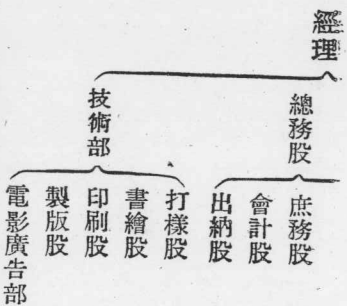 經理
總務股
技術部
庶務股
會計股
出納股
打樣股
書繪股
印刷股
製版股
電影廣告部